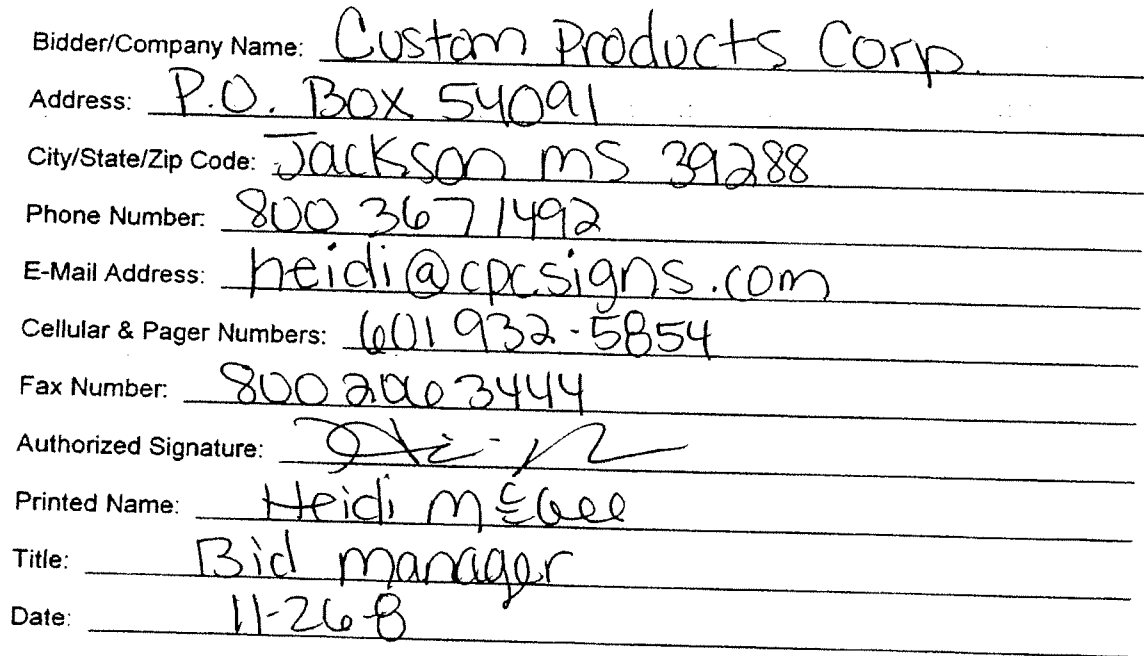 Bidder/Company Name: Custom Products Corp.
Address: P.O. Box 54091
City/State/Zip Code: Jackson MS 39288
Phone Number: 800 367 1492
E-Mail Address: heidi@cpcsigns.com
Cellular & Pager Numbers: 601 932-5854
Fax Number: 800 206 3444
Authorized Signature:
Printed Name: Heidi McGee
Title: Bid manager
Date: 11-26-8